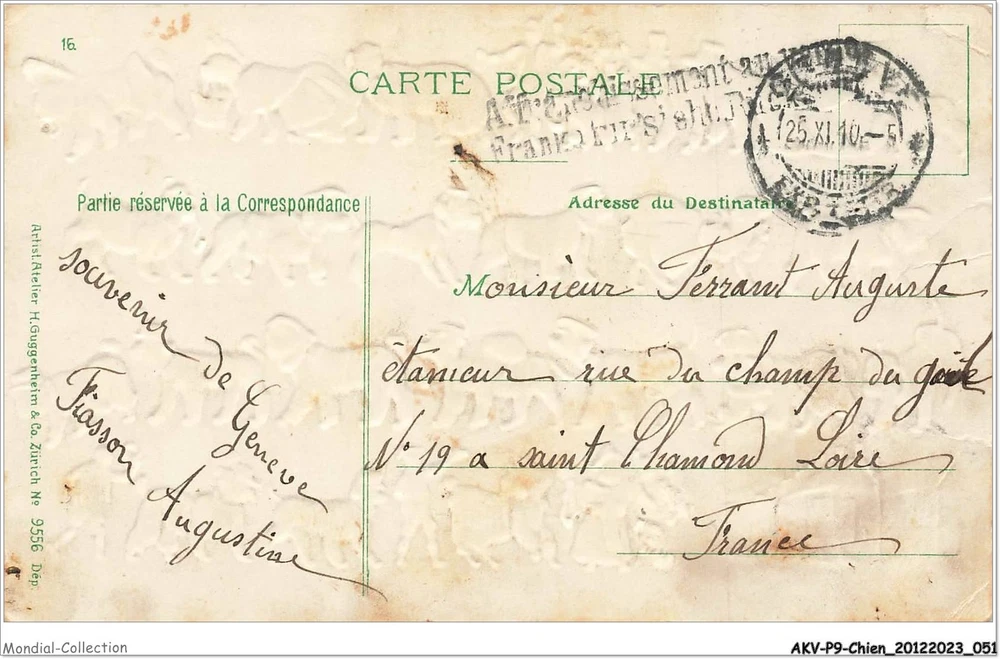 16
CARTE POSTALE
Affranchissement au
Frankatur s. siehe Rücks
25.XI.10.-5
Partie réservée à la Correspondance
Adresse du Destinataire
souvenir de Geneve
Fiasson Augustine
Monsieur Ferrant Auguste
étameur rue du champ du
No 19 a saint Chamond Loire
France
Artist. Atelier H. Guggenheim & Co. Zürich No 9556 Dép.
Mondial-Collection
AKV-P9-Chien_20122023_051